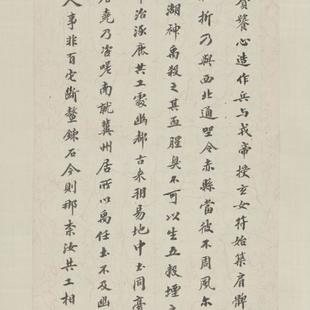 餮心造作兵与我帝授玄女符始築肩髀
折乃與西北通坐令赤縣當彼不周風尓
湖神禹殺之其血腥臭不可以生五穀堙之
治涿鹿共工處幽都古来相易地中土同膏
堯乃咨嗟南就冀州居所以禹任土不及幽
人事非百它斷鼇鍊石今則那柰汝共工相